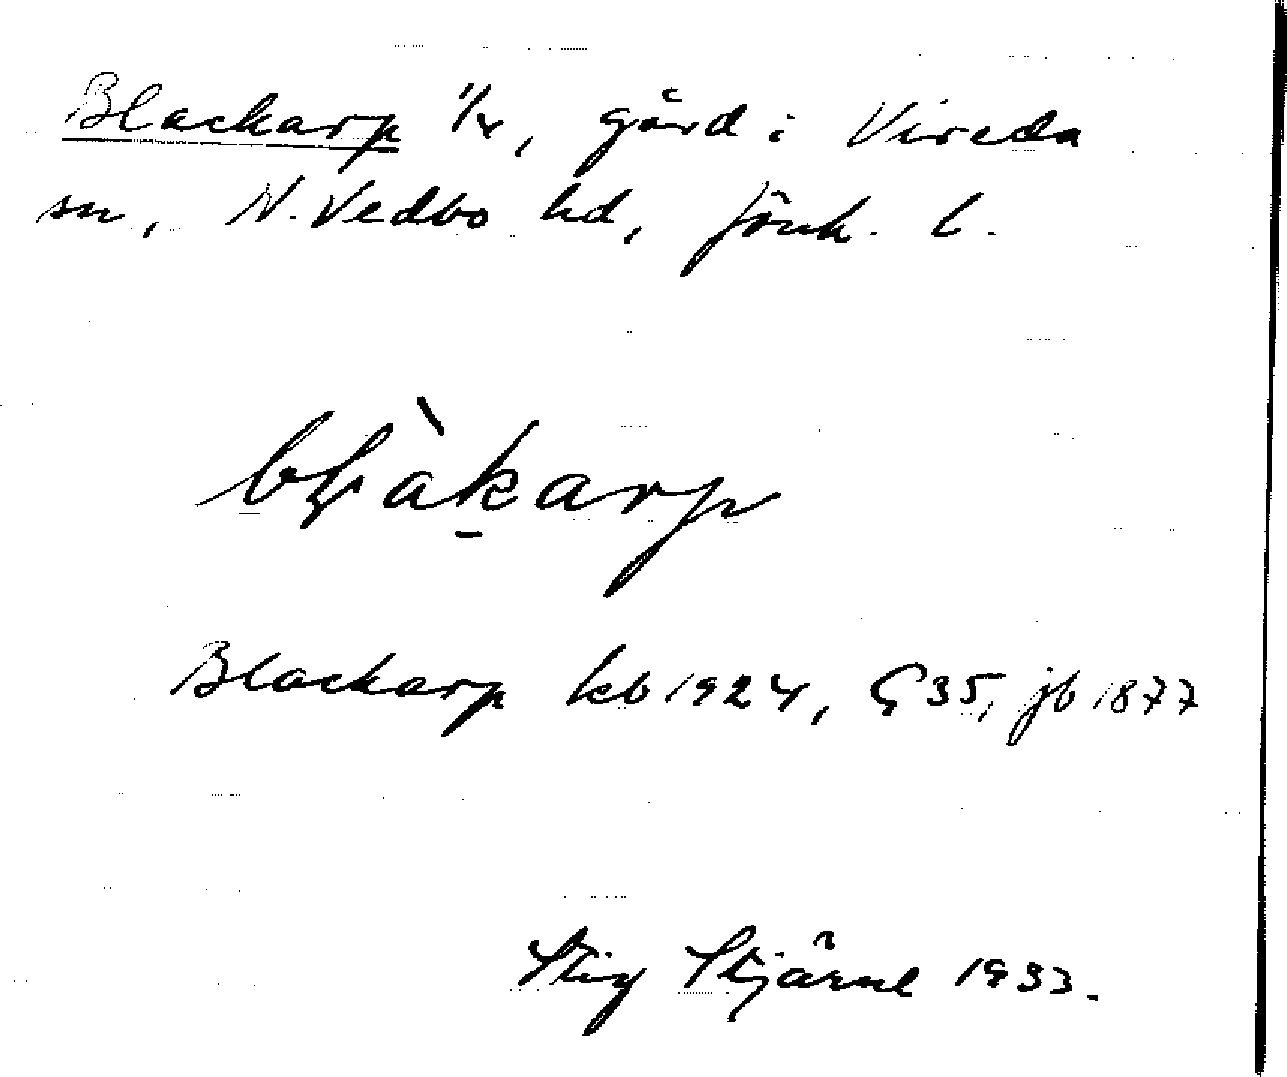 Blackarp 1/4, gård i Vireda
sn, N. Vedbo hd, Jönk. l.
blàkarp
Blackarp kb 1924, G 35, jb 1877
Stig Stjärne 1933.